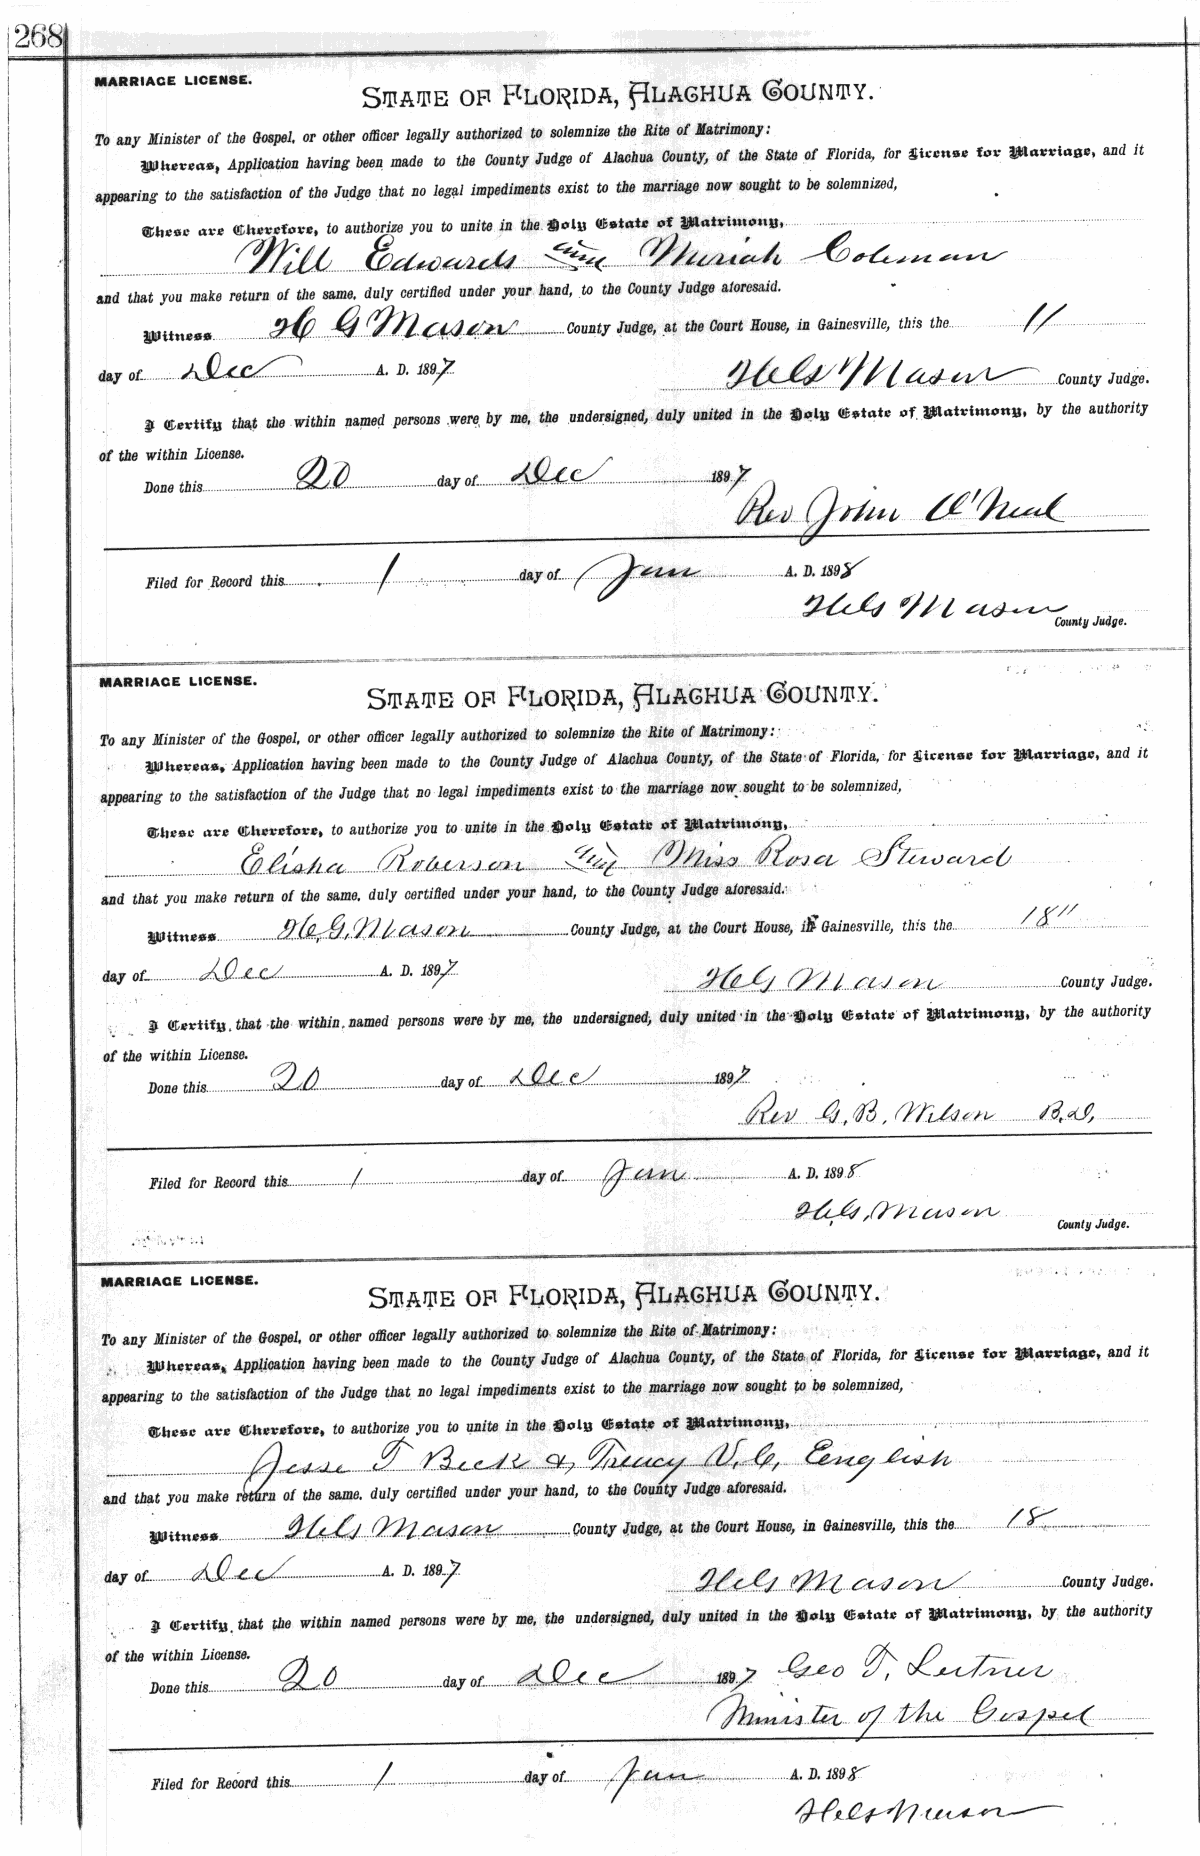 268
MARRIAGE LICENSE.
STATE OF FLORIDA, ALACHUA COUNTY.
To any Minister of the Gospel, or other officer legally authorized to solemnize the Rite of Matrimony:
Whereas, Application having been made to the County Judge of Alachua County, of the State of Florida, for License for Marriage, and it
appearing to the satisfaction of the Judge that no legal impediments exist to the marriage now sought to be solemnized,
These are Therefore, to authorize you to unite in the Holy Estate of Matrimony,
Will Edwards and Muriah Coleman
and that you make return of the same, duly certified under your hand, to the County Judge aforesaid.
Witness H G Mason County Judge, at the Court House, in Gainesville, this the 11
day of Dec A. D. 1897 H G Mason County Judge.
I Certify that the within named persons were by me, the undersigned, duly united in the Holy Estate of Matrimony, by the authority
of the within License.
Done this 20 day of Dec 1897
Rev John O'Neal
Filed for Record this 1 day of Jan A. D. 1898
H G Mason
County Judge.
MARRIAGE LICENSE.
STATE OF FLORIDA, ALACHUA COUNTY.
To any Minister of the Gospel, or other officer legally authorized to solemnize the Rite of Matrimony:
Whereas, Application having been made to the County Judge of Alachua County, of the State of Florida, for License for Marriage, and it
appearing to the satisfaction of the Judge that no legal impediments exist to the marriage now sought to be solemnized,
These are Therefore, to authorize you to unite in the Holy Estate of Matrimony,
Elisha Roberson and Miss Rosa Steward
and that you make return of the same, duly certified under your hand, to the County Judge aforesaid.
Witness H.G. Mason County Judge, at the Court House, in Gainesville, this the 18"
day of Dec A. D. 1897 H G Mason County Judge.
I Certify that the within named persons were by me, the undersigned, duly united in the Holy Estate of Matrimony, by the authority
of the within License.
Done this 20 day of Dec 1897
Rev G. B. Wilson B.D.
Filed for Record this 1 day of Jan A. D. 1898
H.G. Mason
County Judge.
MARRIAGE LICENSE.
STATE OF FLORIDA, ALACHUA COUNTY.
To any Minister of the Gospel, or other officer legally authorized to solemnize the Rite of Matrimony:
Whereas, Application having been made to the County Judge of Alachua County, of the State of Florida, for License for Marriage, and it
appearing to the satisfaction of the Judge that no legal impediments exist to the marriage now sought to be solemnized,
These are Therefore, to authorize you to unite in the Holy Estate of Matrimony,
Jesse T Beck & V. C. English
and that you make return of the same, duly certified under your hand, to the County Judge aforesaid.
Witness H G Mason County Judge, at the Court House, in Gainesville, this the 18
day of Dec A. D. 1897 H G Mason County Judge.
I Certify that the within named persons were by me, the undersigned, duly united in the Holy Estate of Matrimony, by the authority
of the within License.
Done this 20 day of Dec 1897 Geo T. Leitner
Minister of the Gospel
Filed for Record this 1 day of Jan A. D. 1898
H G Mason